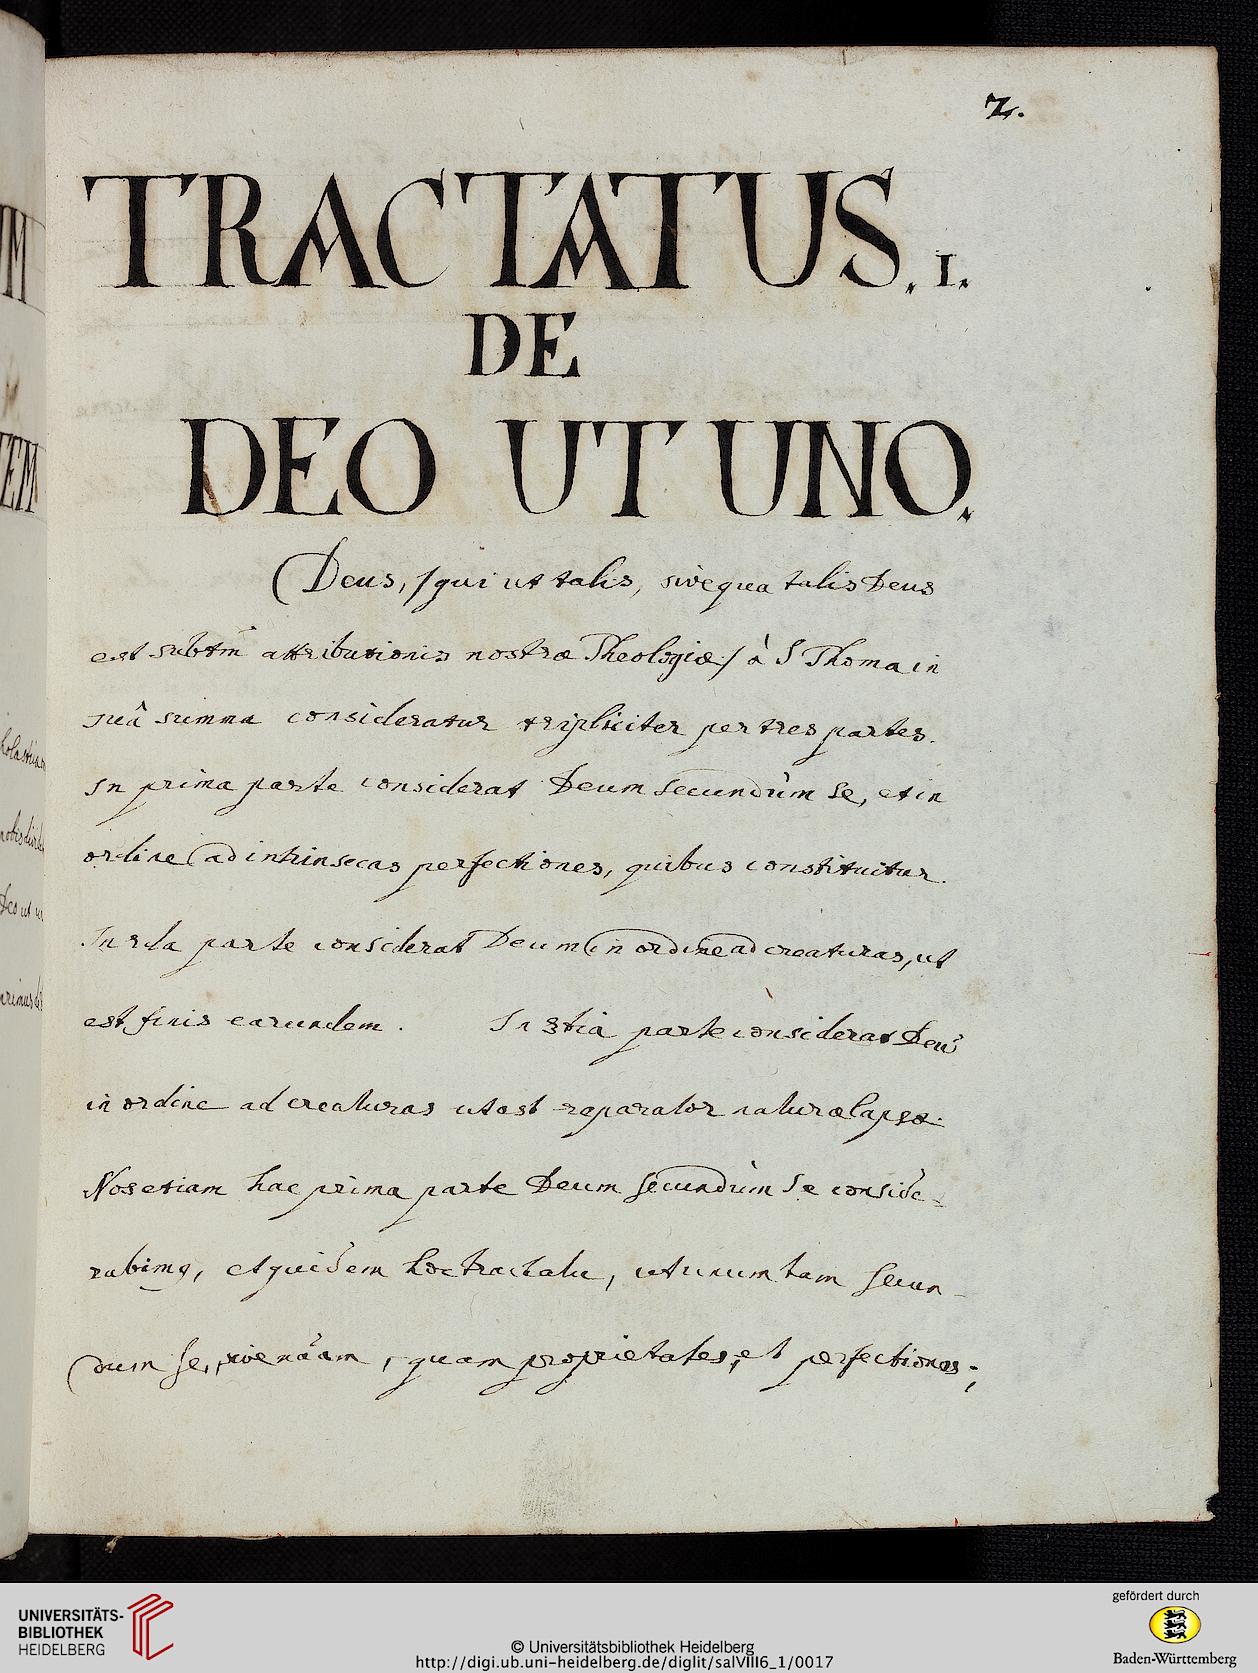 2.
TRACTATUS. 1.
DE
DEO UT UNO.
Deus, /qui ut talis, sive qua talis Deus
est subtm̃ attributionis nostræ Theologiæ/ à S Thoma in
suâ summa consideratur tripliciter per tres partes.
In prima parte considerat Deum secundùm se, et in
ordine ad intrinsecas perfectiones, quibus constituitur.
In 2da parte considerat Deum in ordine ad creaturas, ut
est finis earundem. In 3tia parte considerat Deũ
in ordine ad creaturas ut est reparator naturæ lapsæ.
Nos etiam hac prima parte Deum secundùm se conside-
rabimq, et quidem hoc tractatu, ut unum tam secun-
dum se, sive nãam, quam proprietates, et perfectiones;
holasticam
nobis
Deo ut un
primus
UM
TEM
UNIVERSITÄTS-
BIBLIOTHEK
HEIDELBERG
© Universitätsbibliothek Heidelberg
http://digi.ub.uni-heidelberg.de/diglit/salVIII6_1/0017
gefördert durch
Baden-Württemberg